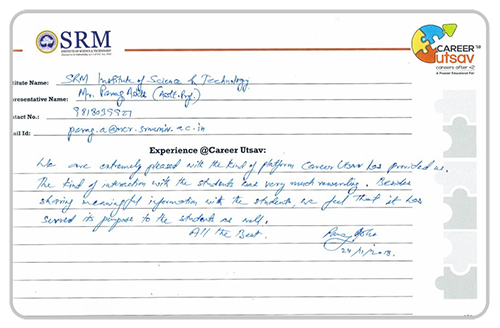 SRM
INSTITUTE OF SCIENCE & TECHNOLOGY
CAREER
utsav
careers after +2
A Premier Educational Fair
titute Name: SRM Institute of Science & Technology
epresentative Name: Mr. Parag (Asstt. Prof.)
ntact No.: 9818039927
mail Id: parag.a@ncr.srmuniv.ac.in
Experience @Career Utsav:
We are extremely pleased with the kind of platform Career Utsav has provided us.
The kind of interaction with the students were very much rewarding. Besides
sharing meaningful information with the students, we feel that it has
served its purpose to the students as well.
All the Best.
24/11/2018.